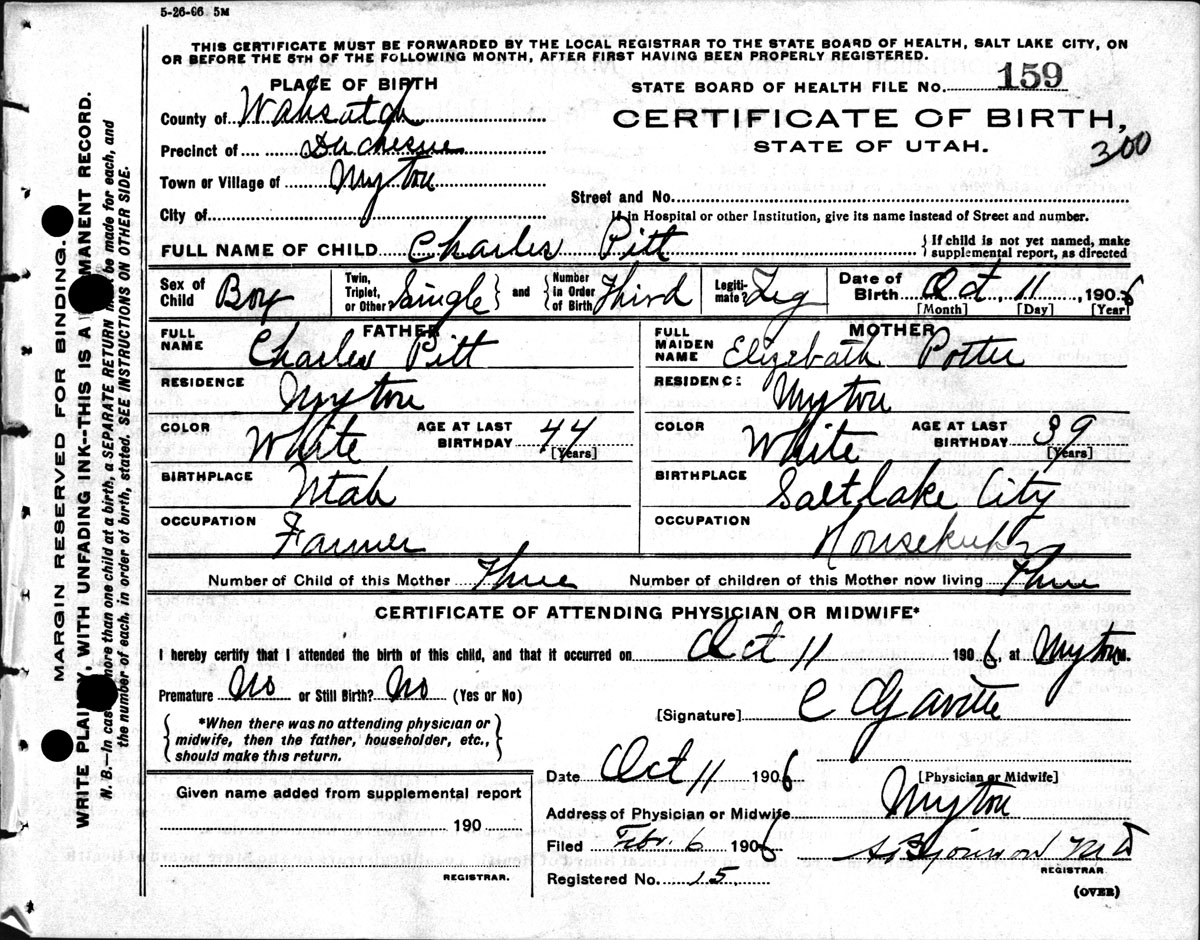 5-26-66 5M
THIS CERTIFICATE MUST BE FORWARDED BY THE LOCAL REGISTRAR TO THE STATE BOARD OF HEALTH, SALT LAKE CITY, ON
OR BEFORE THE 5TH OF THE FOLLOWING MONTH, AFTER FIRST HAVING BEEN PROPERLY REGISTERED.
PLACE OF BIRTH
STATE BOARD OF HEALTH FILE No. 159
County of Wahsatch
CERTIFICATE OF BIRTH,
300
Precinct of Duchesne
STATE OF UTAH.
Town or Village of Myton
Street and No.
City of
If in Hospital or other Institution, give its name instead of Street and number.
FULL NAME OF CHILD Charles Pitt { If child is not yet named, make
supplemental report, as directed
Sex of Child Boy
Twin, Triplet, or Other? Single } and { Number in Order of Birth Third
Legiti-mate? Leg
Date of Birth Oct, 11, 1906
[Month] [Day] [Year]
FATHER
FULL NAME Charles Pitt
RESIDENCE Myton
COLOR White AGE AT LAST BIRTHDAY 44 [Years]
BIRTHPLACE Utah
OCCUPATION Farmer
MOTHER
FULL MAIDEN NAME Elizebath Potter
RESIDENCE Myton
COLOR White AGE AT LAST BIRTHDAY 39 [Years]
BIRTHPLACE Salt Lake City
OCCUPATION
Number of Child of this Mother Three Number of children of this Mother now living Three
CERTIFICATE OF ATTENDING PHYSICIAN OR MIDWIFE*
I hereby certify that I attended the birth of this child, and that it occurred on Oct 11 1906, at Myton
Premature No or Still Birth? No (Yes or No)
[Signature] C
{ *When there was no attending physician or
midwife, then the father, householder, etc.,
should make this return. }
Date Oct 11 1906
[Physician or Midwife]
Given name added from supplemental report
190
REGISTRAR.
Address of Physician or Midwife Myton
Filed Febr. 6 1906
M D
REGISTRAR
Registered No. 15
(OVER)
MARGIN RESERVED FOR BINDING.
WRITE PLAINLY, WITH UNFADING INK--THIS IS A PERMANENT RECORD.
N. B.—In case more than one child at a birth, a SEPARATE RETURN must be made for each, and
the number of each, in order of birth, stated. SEE INSTRUCTIONS ON OTHER SIDE.